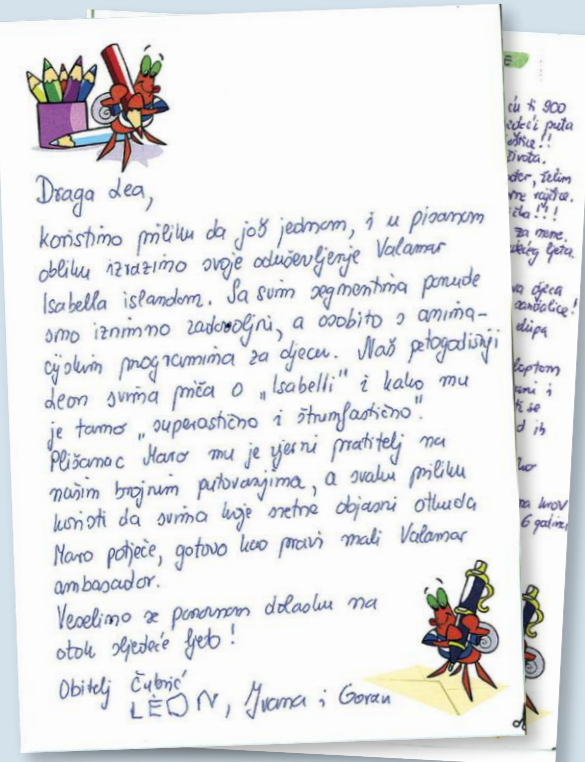 Draga Lea,
koristimo priliku da još jednom, i u pisanom
obliku izrazimo svoje oduševljenje Valamar
Isabella islandom. Sa svim segmentima ponude
smo iznimno zadovoljni, a osobito s anima-
cijskim programima za djecu. Naš petogodišnji
Leon svima priča o „Isabelli" i kako mu
je tamo „superastično i štrumfastično".
Plišanac Maro mu je vjerni pratitelj na
našim brojnim putovanjima, a svaku priliku
koristi da svima koje sretne objasni otkuda
Maro potječe, gotovo kao pravi mali Valamar
ambasador.
Veselimo se ponovnom dolasku na
otok sljedeće ljeto!
Obitelj Čubrić
LEON, Ivana i Goran
ću ti 900
puta
života.
želim
za mene.
ljeta.
djeca
sandalice!
ekipa
loptom
i
se
ih
na krov
6 godina